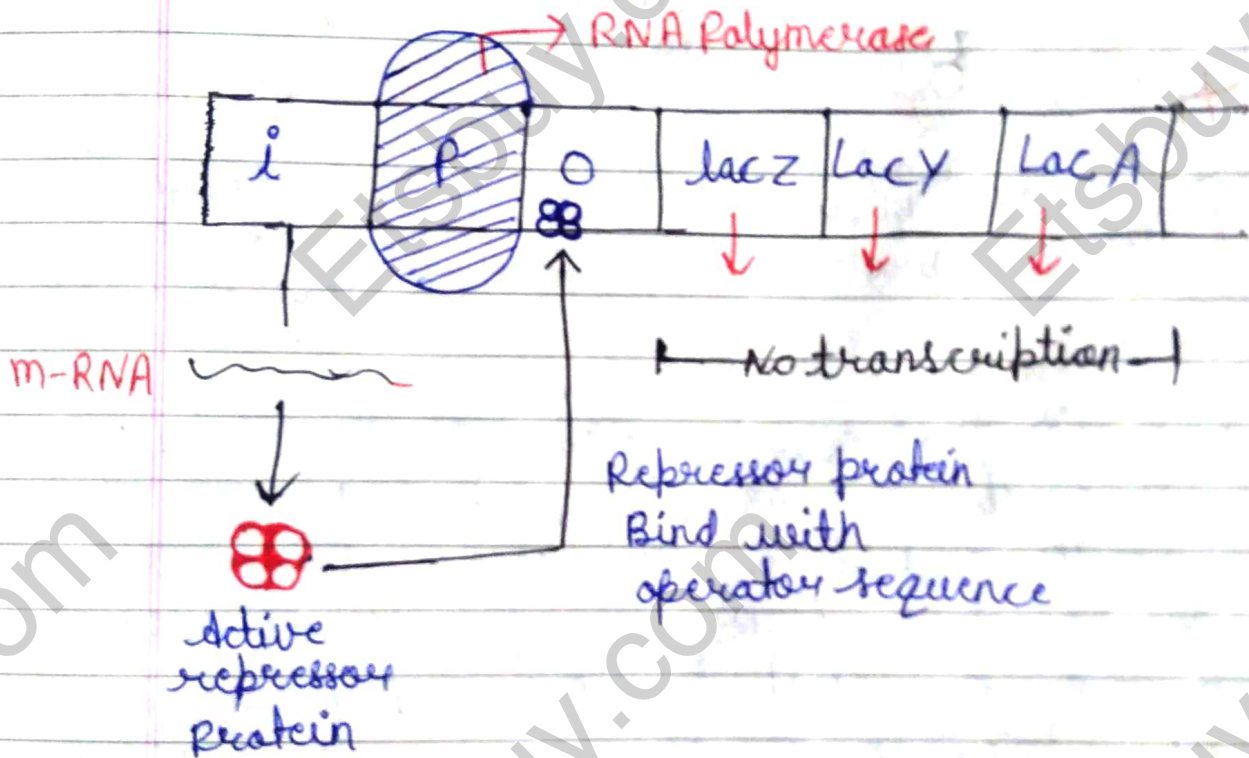 RNA Polymerase
i P O lacZ LacY LacA
m-RNA
No transcription
Repressor protein
Bind with
operator sequence
Active
repressor
Protein
Etsbuy.com
Etsbuy
Etsbuy
om
uy.com